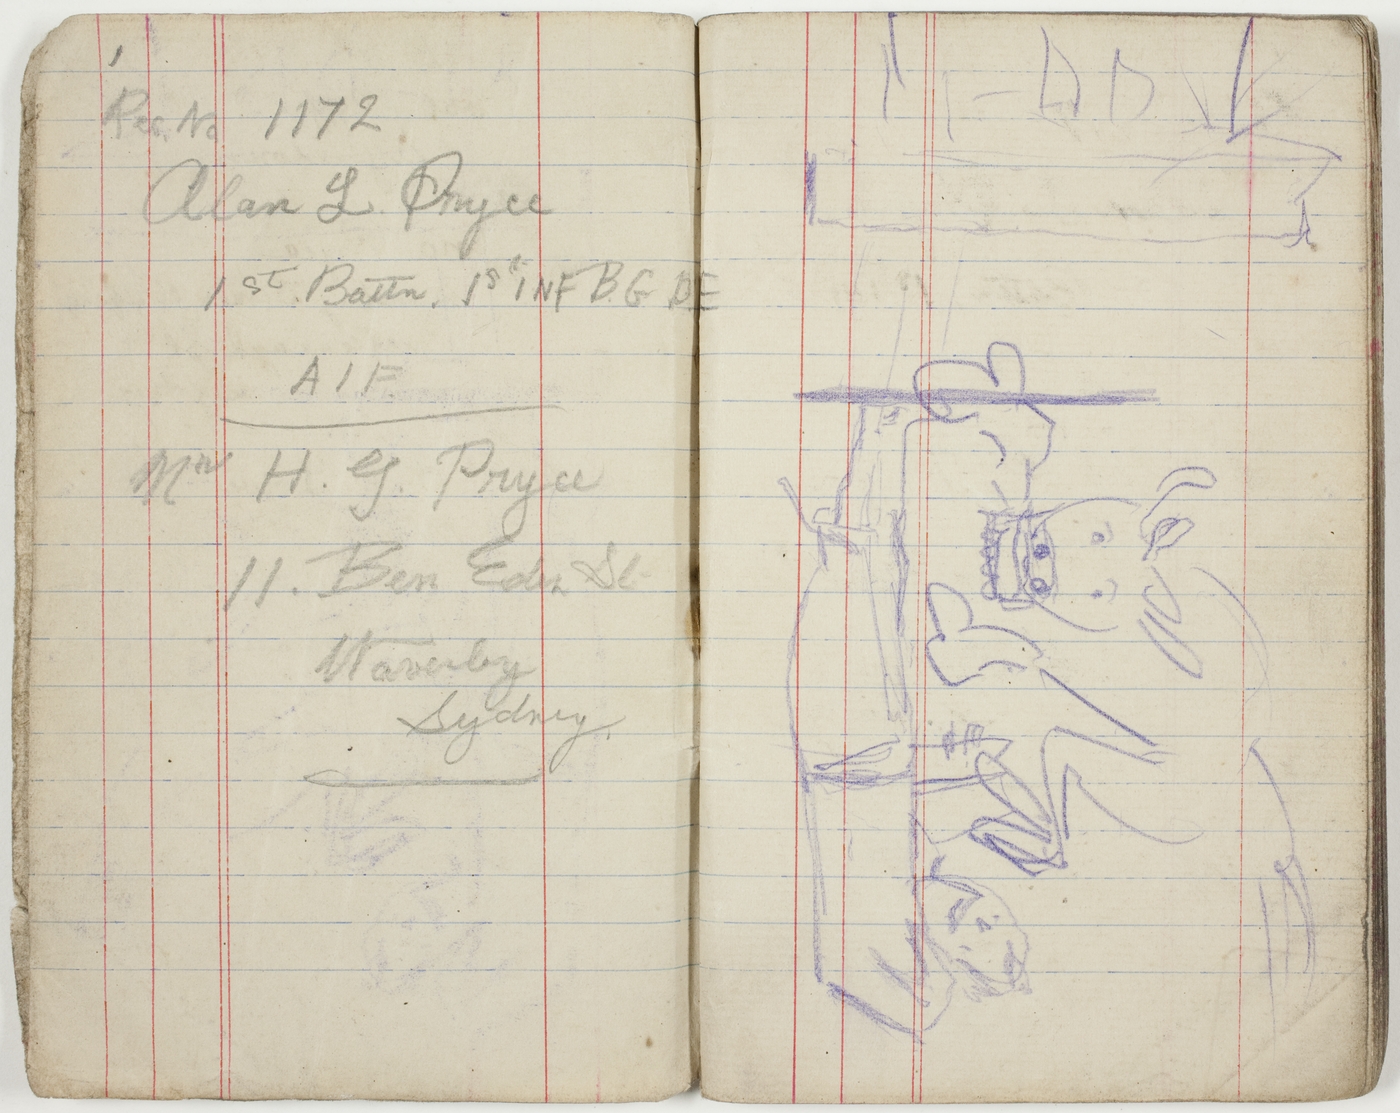 Reg. No 1172
Alan L. Pryce
1st Battn. 1st INF BGDE
AIF
Mrs H. G. Pryce
11. Ben Eden St
Waverley
Sydney.